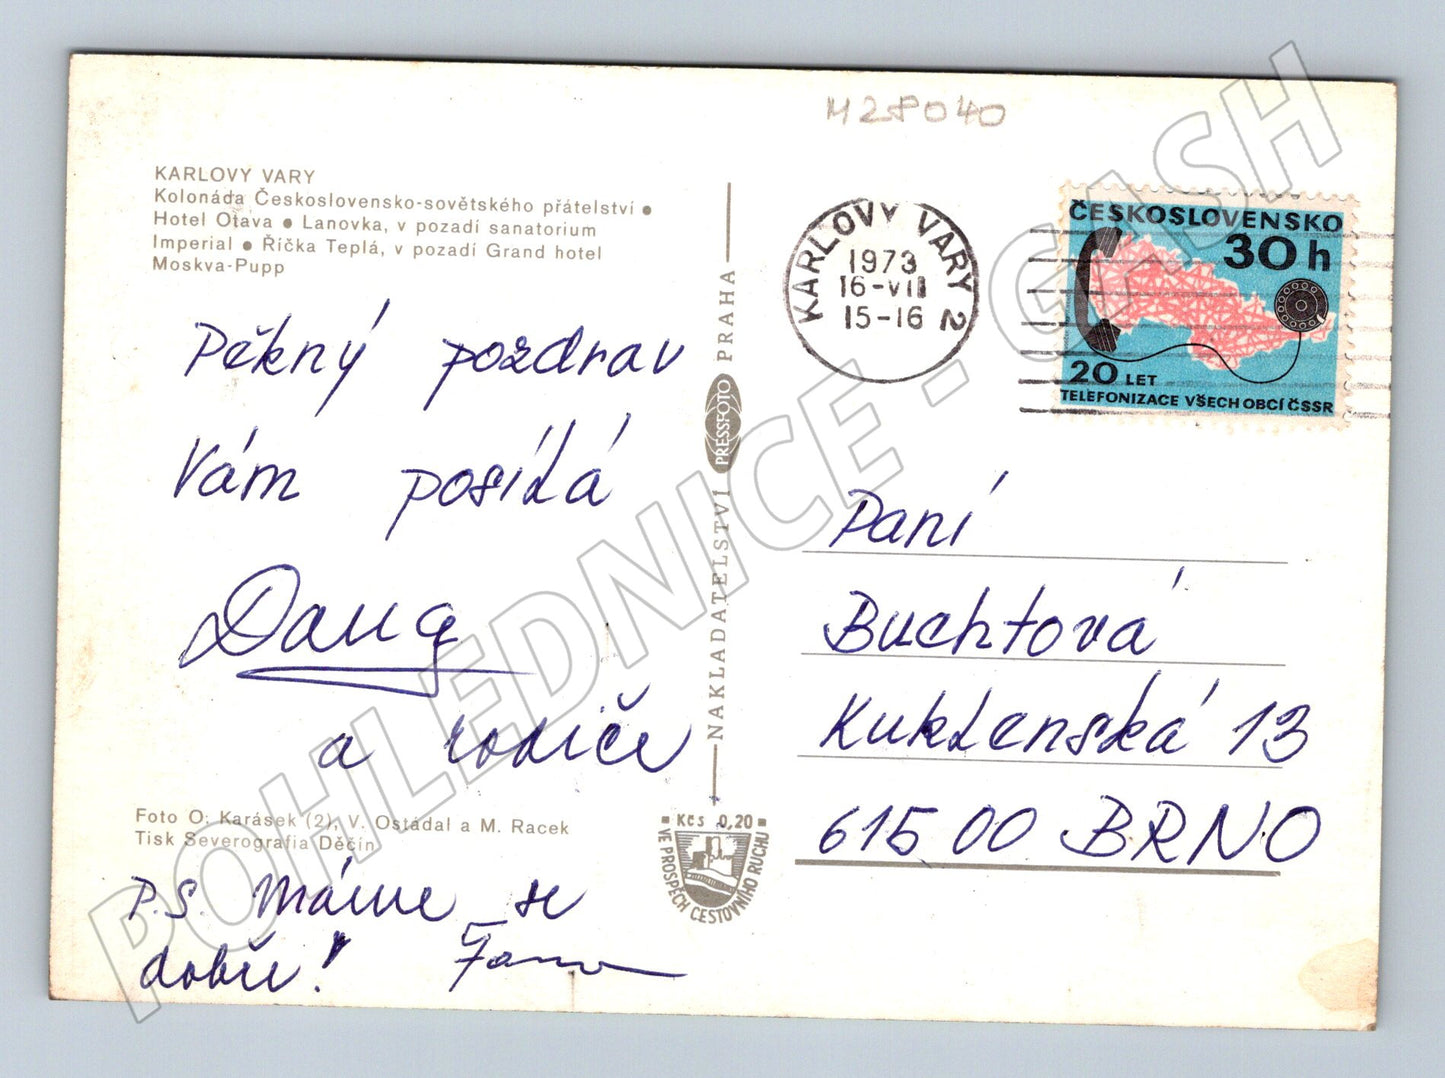 M28040
KARLOVY VARY
Kolonáda Československo-sovětského přátelství ●
Hotel Otava ● Lanovka, v pozadí sanatorium
Imperial ● Říčka Teplá, v pozadí Grand hotel
Moskva-Pupp
Pěkný pozdrav
Vám posílá
Dana
a rodiče
Foto O. Karásek (2), V. Ostádal a M. Racek
Tisk Severografia Děčín
P.S. Máme se
dobře!
NAKLADATELSTVÍ PRESSFOTO PRAHA
Kčs 0,20
VE PROSPĚCH CESTOVNÍHO RUCHU
KARLOVY VARY 2
1973
16-VII
15-16
ČESKOSLOVENSKO
30 h
20 LET
TELEFONIZACE VŠECH OBCÍ ČSSR
Paní
Buchtová
Kuklenská 13
615 00 BRNO
POHLEDNICE - GASH